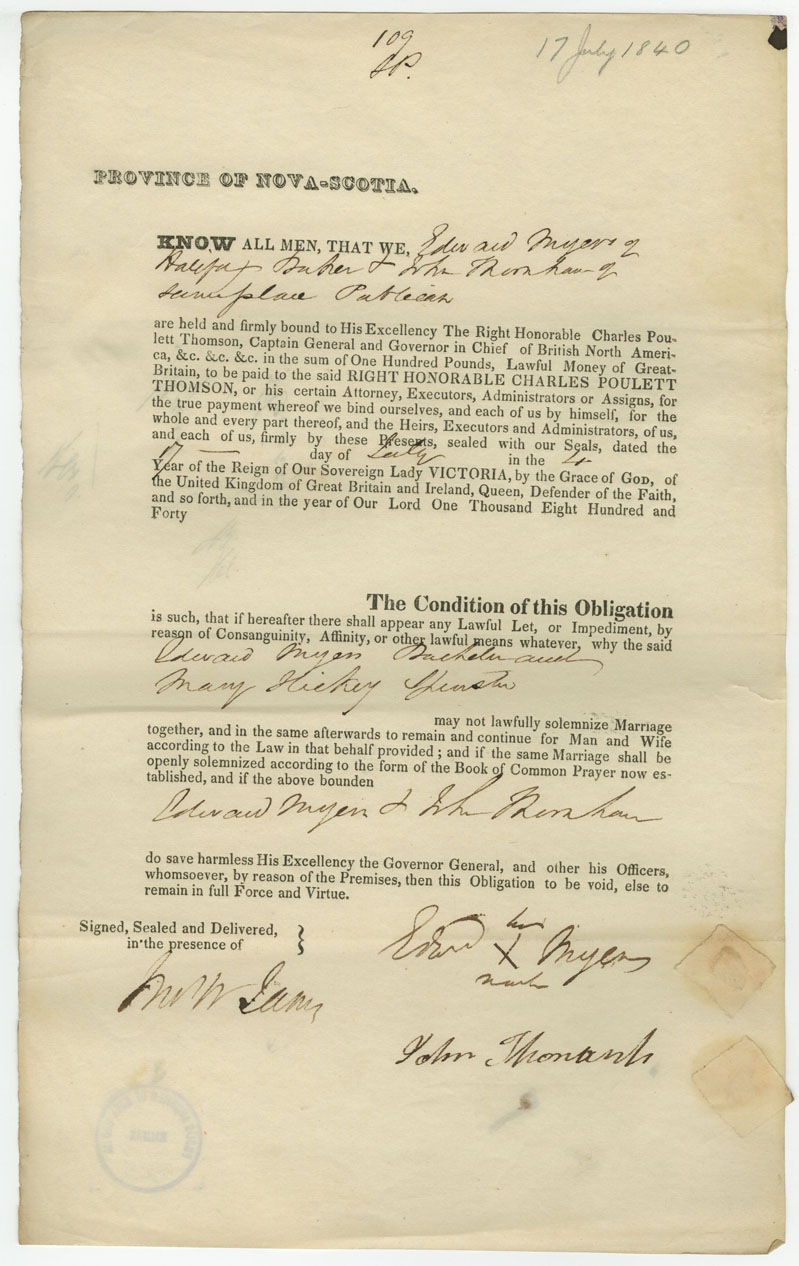 109
17 July 1840
PROVINCE OF NOVA-SCOTIA.
KNOW ALL MEN, THAT WE, Edward Myers of
Halifax Baker & John Thornham of
same place Publican
are held and firmly bound to His Excellency The Right Honorable Charles Pou-
lett Thomson, Captain General and Governor in Chief of British North Ameri-
ca, &c. &c. &c. in the sum of One Hundred Pounds, Lawful Money of Great-
Britain, to be paid to the said RIGHT HONORABLE CHARLES POULETT
THOMSON, or his certain Attorney, Executors, Administrators or Assigns, for
the true payment whereof we bind ourselves, and each of us by himself, for the
whole and every part thereof, and the Heirs, Executors and Administrators, of us,
and each of us, firmly by these Presents, sealed with our Seals, dated the
17 day of July in the 4
Year of the Reign of Our Sovereign Lady VICTORIA, by the Grace of GOD, of
the United Kingdom of Great Britain and Ireland, Queen, Defender of the Faith,
and so forth, and in the year of Our Lord One Thousand Eight Hundred and
Forty
The Condition of this Obligation
is such, that if hereafter there shall appear any Lawful Let, or Impediment, by
reason of Consanguinity, Affinity, or other lawful means whatever, why the said
Edward Myers Bachelor and
Mary Hickey Spinster
may not lawfully solemnize Marriage
together, and in the same afterwards to remain and continue for Man and Wife
according to the Law in that behalf provided ; and if the same Marriage shall be
openly solemnized according to the form of the Book of Common Prayer now es-
tablished, and if the above bounden
Edward Myers & John Thornham
do save harmless His Excellency the Governor General, and other his Officers,
whomsoever, by reason of the Premises, then this Obligation to be void, else to
remain in full Force and Virtue.
Signed, Sealed and Delivered,
in the presence of
his
Edward X Myers
mark
John